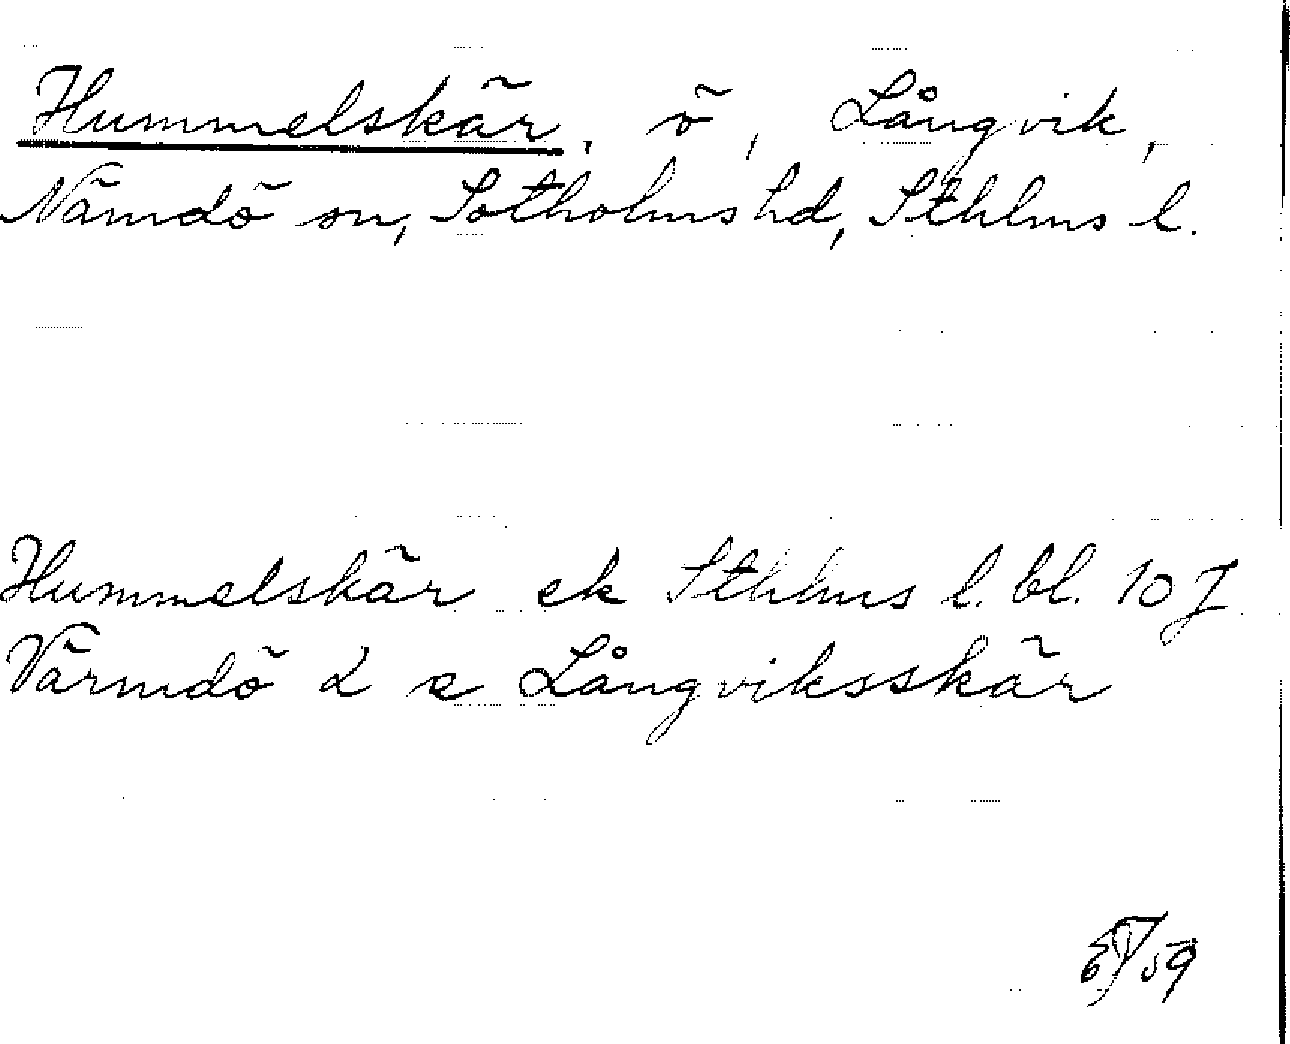 Hummelskär, ö, Långvik,
Nämdö sn, Sotholms hd, Sthlms l.
Hummelskär ek Sthlms l. bl. 10 J
Värmdö 2 e Långviksskär